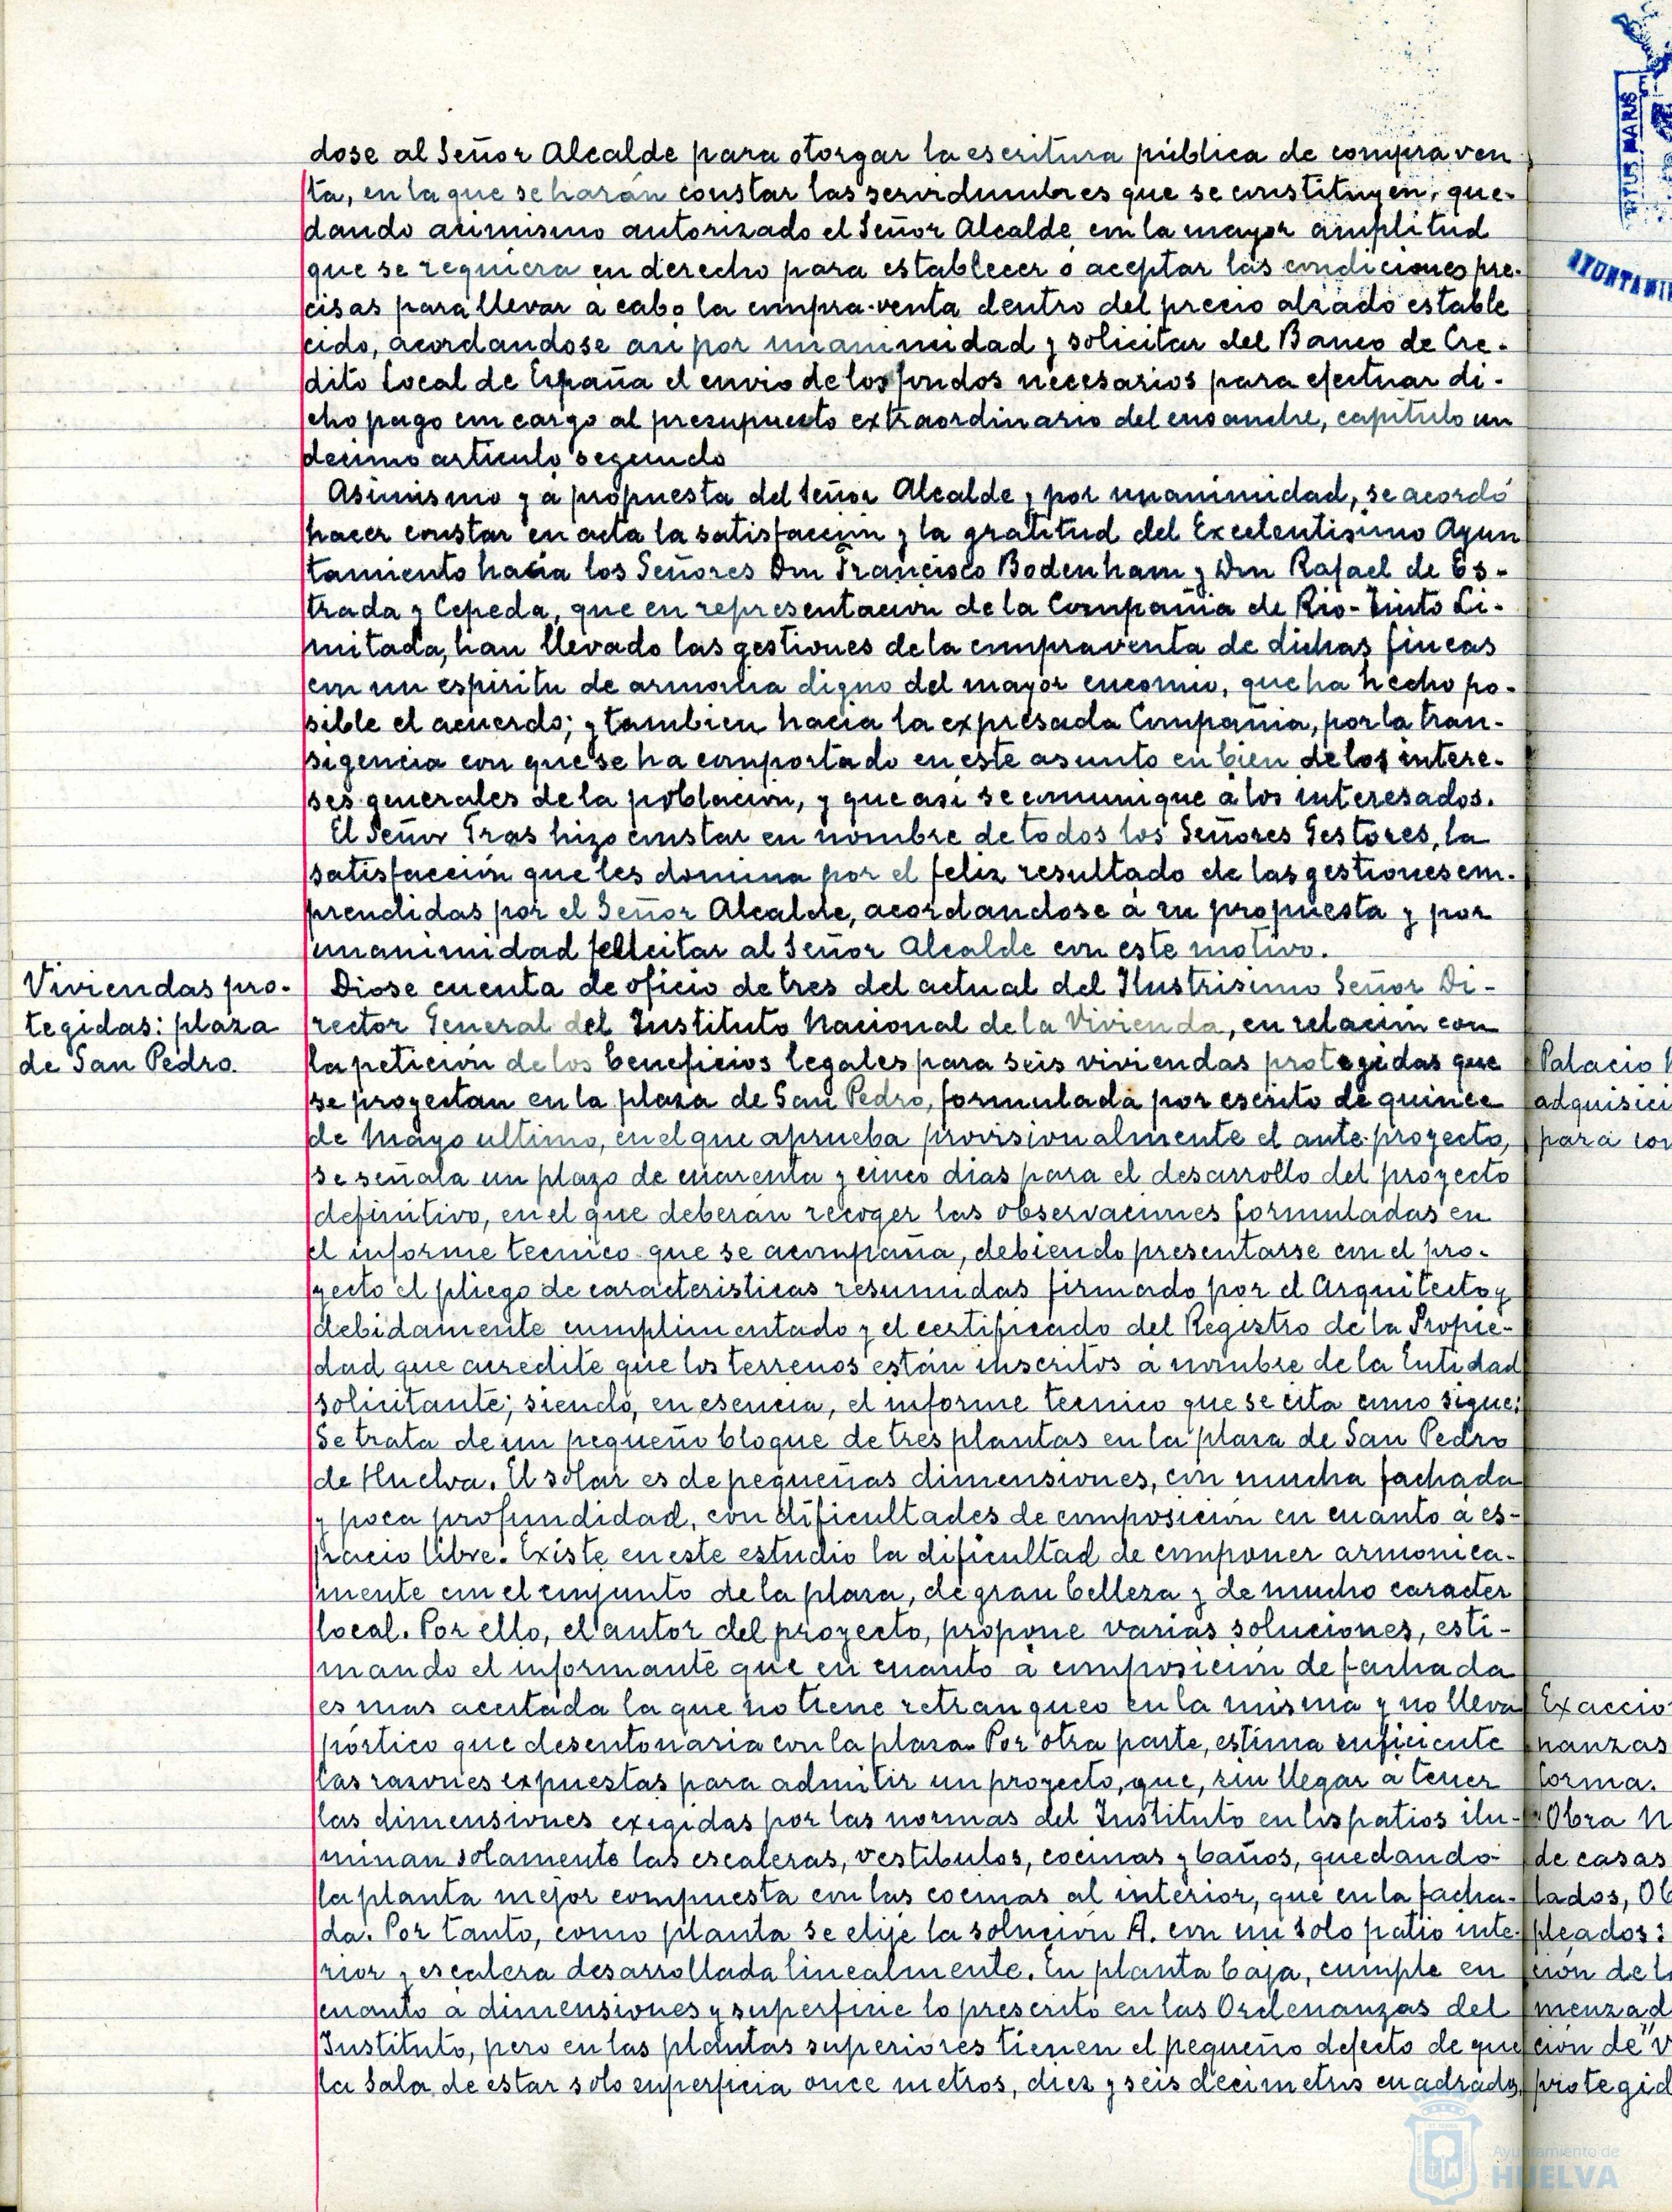 dose al Señor Alcalde para otorgar la escritura pública de compraven
ta, en la que se harán constar las servidumbres que se constituyen, que-
dando asimismo autorizado el Señor Alcalde con la mayor amplitud
que se requiera en derecho para establecer o aceptar las condiciones pre-
cisas para llevar a cabo la compra-venta dentro del precio alzado estable
cido, acordandose asi por unanimidad y solicitar del Banco de Cre-
dito Local de España el envio de los fondos necesarios para efectuar di-
cho pago con cargo al presupuesto extraordinario del ensanche, capitulo un
decimo articulo segundo
Asimismo y a propuesta del Señor Alcalde y por unanimidad, se acordó
hacer constar en acta la satisfacción y la gratitud del Excelentisimo Ayun
tamiento hacia los Señores Don Francisco Bodenham y Don Rafael de Es-
trada y Cepeda, que en representación de la Compañia de Rio-Tinto Li-
mitada, han llevado las gestiones de la compraventa de dichas fincas
con un espiritu de armonia digno del mayor encomio, que ha hecho po-
sible el acuerdo; y tambien hacia la expresada Compañia, por la tran-
sigencia con que se ha comportado en este asunto en bien de los intere-
ses generales de la población, y que asi se comunique a los interesados.
El Señor Tras hizo constar en nombre de todos los Señores Gestores, la
satisfacción que les domina por el feliz resultado de las gestiones em-
prendidas por el Señor Alcalde, acordandose a su propuesta y por
unanimidad felicitar al Señor Alcalde con este motivo.
Viviendas pro-
tegidas: plaza
de San Pedro.
Diose cuenta de oficio de tres del actual del Ilustrisimo Señor Di-
rector General del Instituto Nacional de la Vivienda, en relación con
la petición de los beneficios legales para seis viviendas protegidas que
se proyectan en la plaza de San Pedro, formulada por escrito de quince
de Mayo ultimo, en el que aprueba provisionalmente el ante-proyecto,
se señala un plazo de cuarenta y cinco dias para el desarrollo del proyecto
definitivo, en el que deberán recoger las observaciones formuladas en
el informe tecnico que se acompaña, debiendo presentarse con el pro-
yecto el pliego de caracteristicas resumidas firmado por el Arquitecto y
debidamente cumplimentado y el certificado del Registro de la Propie-
dad que acredite que los terrenos están inscritos a nombre de la Entidad
solicitante; siendo, en esencia, el informe tecnico que se cita como sigue:
Se trata de un pequeño bloque de tres plantas en la plaza de San Pedro
de Huelva. El solar es de pequeñas dimensiones, con mucha fachada
y poca profundidad, con dificultades de composición en cuanto a es-
pacio libre. Existe en este estudio la dificultad de componer armonica-
mente con el conjunto de la plaza, de gran belleza y de mucho caracter
local. Por ello, el autor del proyecto, propone varias soluciones, esti-
mando el informante que en cuanto a composición de fachada
es mas acertada la que no tiene retranqueo en la misma y no lleva
pórtico que desentonaria con la plaza. Por otra parte, estima suficiente
las razones expuestas para admitir un proyecto, que, sin llegar a tener
las dimensiones exigidas por las normas del Instituto en los patios ilu-
minan solamente las escaleras, vestibulos, cocinas y baños, quedando
la planta mejor compuesta con las cocinas al interior, que en la facha-
da. Por tanto, como planta se elije la solución A. con un solo patio inte-
rior y escalera desarrollada linealmente. En planta baja, cumple en
cuanto a dimensiones y superficie lo prescrito en las Ordenanzas del
Instituto, pero en las plantas superiores tienen el pequeño defecto de que
la sala de estar solo superficia once metros, diez y seis decimetros cuadrados,
Palacio
adquisici
para con
Exaccio
nanzas
forma.
Obra N
de casas
lados, Ob
pleados:
ción de l
menzad
ción de "V
protegid
AYUNTAMI
Ayuntamiento de
HUELVA